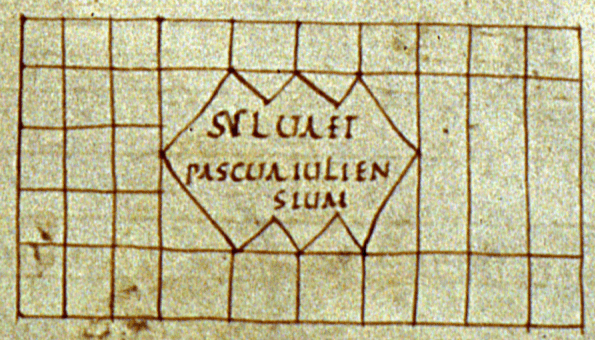 SVLUAET
PASCUAIULIEN
SIUM